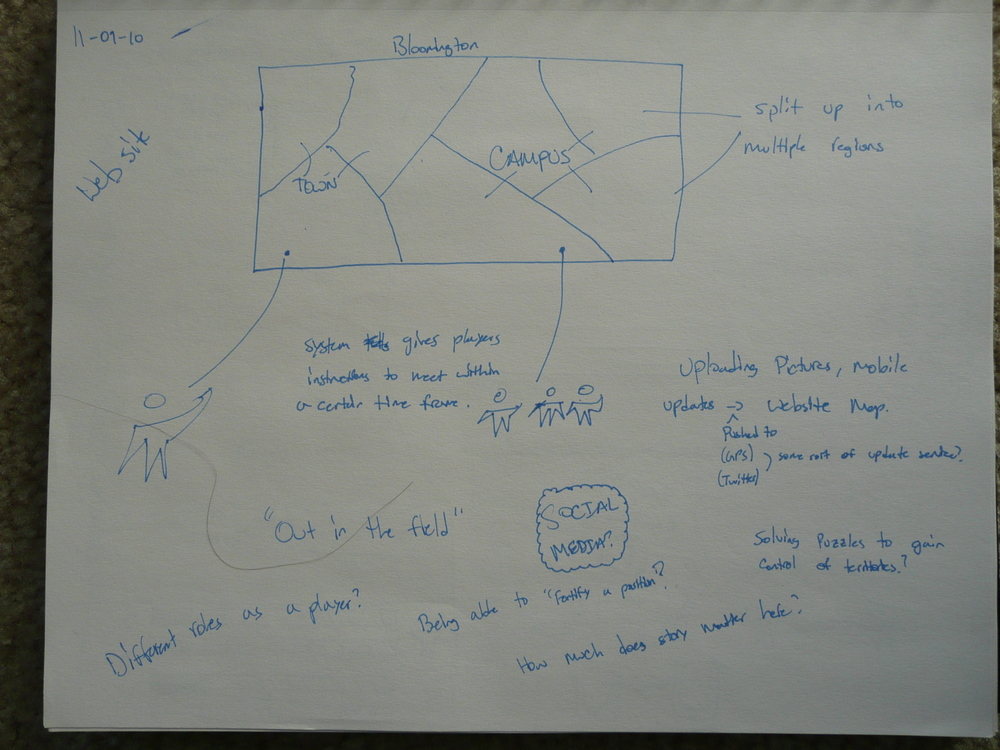 11-09-10
Bloomington
Web site
TOWN
CAMPUS
split up into
multiple regions
System gives players
instructions to meet within
a certain time frame.
Uploading Pictures, mobile
updates -> Website Map.
Pushed to
(GPS)
(Twitter)
some sort of update service?
"Out in the field"
SOCIAL
MEDIA?
Solving Puzzles to gain
control of territories?
Different roles as a player?
Being able to "fortify a position"?
How much does story matter here?